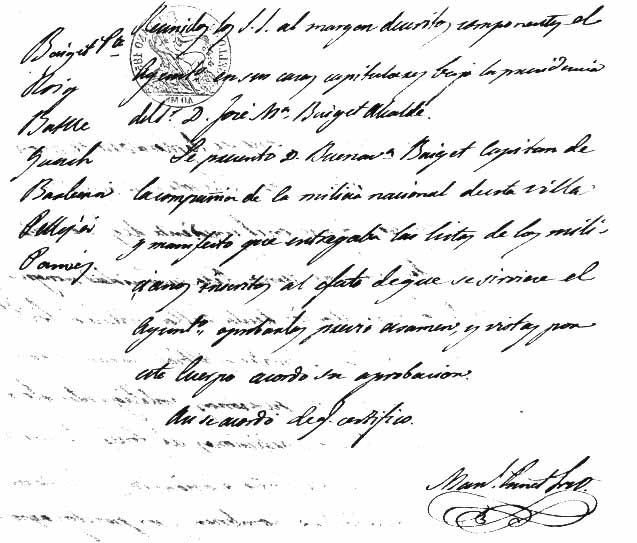 Baiget Pte
Roig
Batlle
Guach
Barberá
Pellejér
Pamiés
Reunidos los S.S. al margen descritos componentes el
Ayunto. en sus casas capitulares bajo la presidencia
del Sr. D. José Ma. Baiget Alcalde.
Se presento D. Buenava. Baiget Capitan de
la compañia de la milicia nacional de esta villa
y manifestó que entregaba las listas de los mili-
cianos inscritos al efecto de que se sirviere el
Ayunto. aprobarlas previo examen, y vistas por
este Cuerpo acordó su aprobacion.
Asi se acordó de q. certifico.
Manl. Srio.